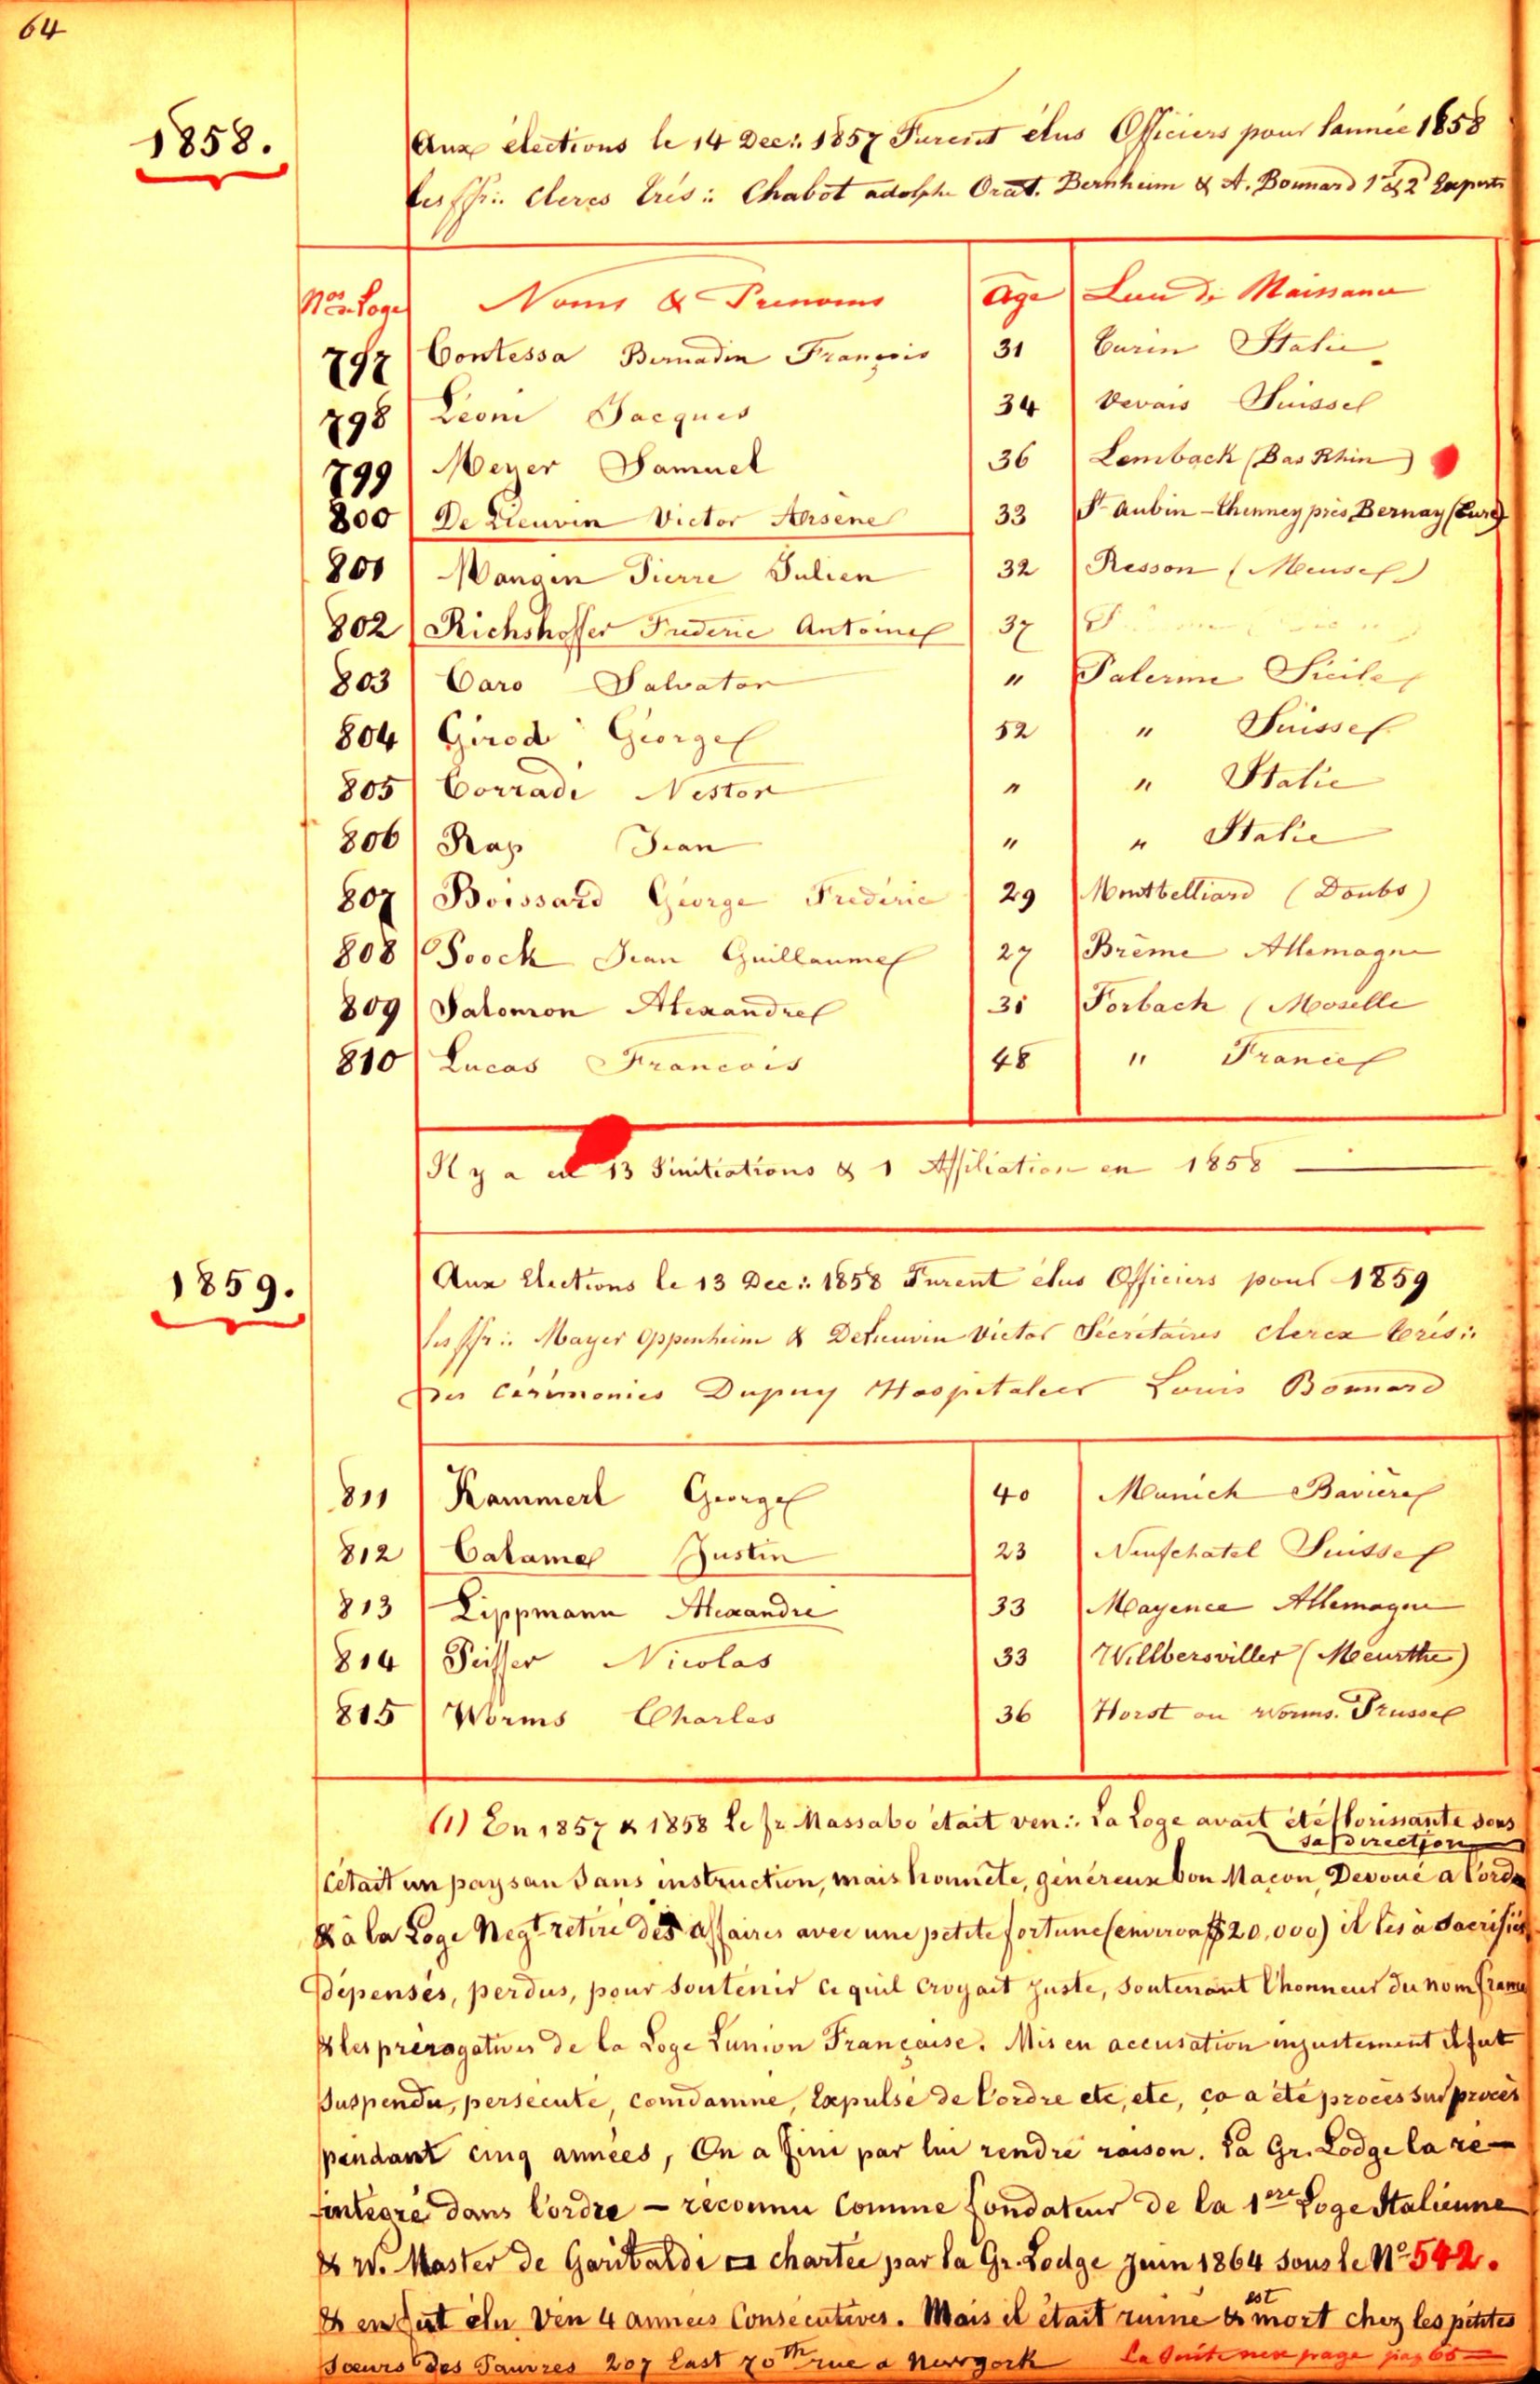 64
1858.
Aux élections le 14 Dec∴ 1857 Furent élus Officiers pour l'année 1858
les ffr∴ Clercs Trés∴ Chabot adolphe Orat. Bernheim & A. Bonnard 1er & 2d Experts
Nos de Loge Noms & Prenoms Age Lieu de Naissance
797 Contessa Bernadin François 31 Turin Italie
798 Léoni Jacques 34 Vevais Suisse
799 Meyer Samuel 36 Lemback (Bas Rhin)
800 De Lieuvin Victor Arsène 33 St Aubin - Thenney près Bernay (Eure)
801 Mangin Pierre Julien 32 Resson (Meuse)
802 Richshoffer Frederic Antoine 37
803 Caro Salvator " Palerme Sicile
804 Girod George 52 " Suisse
805 Corradi Nestor " " Italie
806 Rap Jean " " Italie
807 Boissard George Frederic 29 Montbelliard (Doubs)
808 Poock Jean Guillaume 27 Brême Allemagne
809 Salomon Alexandre 31 Forbach (Moselle
810 Lucas Francois 48 " France
Il y a eu 13 Initiations & 1 Affiliation en 1858
1859.
Aux Elections le 13 Dec∴ 1858 Furent élus Officiers pour 1859
les ffr∴ Mayer Oppenheim & Delieuvin Victor Sécrétaires Clercx Trés∴
des Cérémonies Dupuy Hospitalier Louis Bonnard
811 Kammerl George 40 Munich Bavière
812 Calame Justin 23 Neufchatel Suisse
813 Lippmann Alexandre 33 Mayence Allemagne
814 Peiffer Nicolas 33 Willbersviller (Meurthe)
815 Worms Charles 36 Horst ou Worms. Prusse
(1) En 1857 & 1858 Le fr Massabo était ven∴ La Loge avait été florissante sous
sa direction
C'était un paysan sans instruction, mais honnête, généreux bon Maçon, Devoué a l'ordre
& à la Loge Negt retiré des affaires avec une petite fortune (environ $20,000) il les à sacrifiés
Dépensés, perdus, pour soutenir ce quil croyait juste, soutenant l'honneur du nom
& les prérogatives de la Loge L'union Française. Mis en accusation injustement il fut
Suspendu, persécuté, comdamné, Expulsé de l'ordre etc, etc, ça a été procès sur procès
pendant cinq années, On a fini par lui rendre raison. La Gr. Lodge la ré-
intégré dans l'ordre - reconnu Comme fondateur de la 1ere Loge Italienne
& W. Master de Garibaldi ▭ chartée par la Gr. Lodge Juin 1864 sous le No 542.
& en fut élu Ven 4 années Consécutives. Mais il était ruiné & est mort chez les petites
Sœurs des Pauvres 207 East 70th rue a Newyork La Suite nex page pag 65